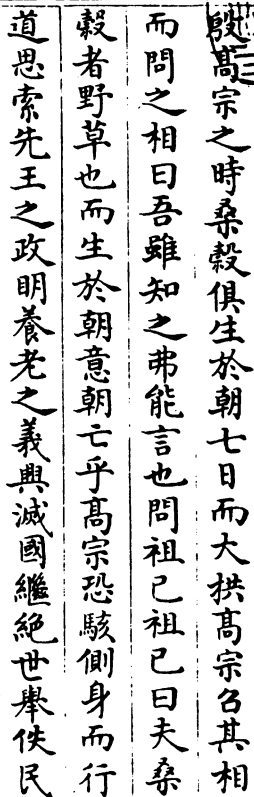 殷髙宗之時桑榖俱生於朝七日而大拱髙宗召其相
而問之相曰吾雖知之弗能言也問祖已祖已曰夫桑
榖者野草也而生於朝意朝亡乎髙宗恐駭側身而行
道思索先王之政明養老之義興滅國繼絕世舉佚民